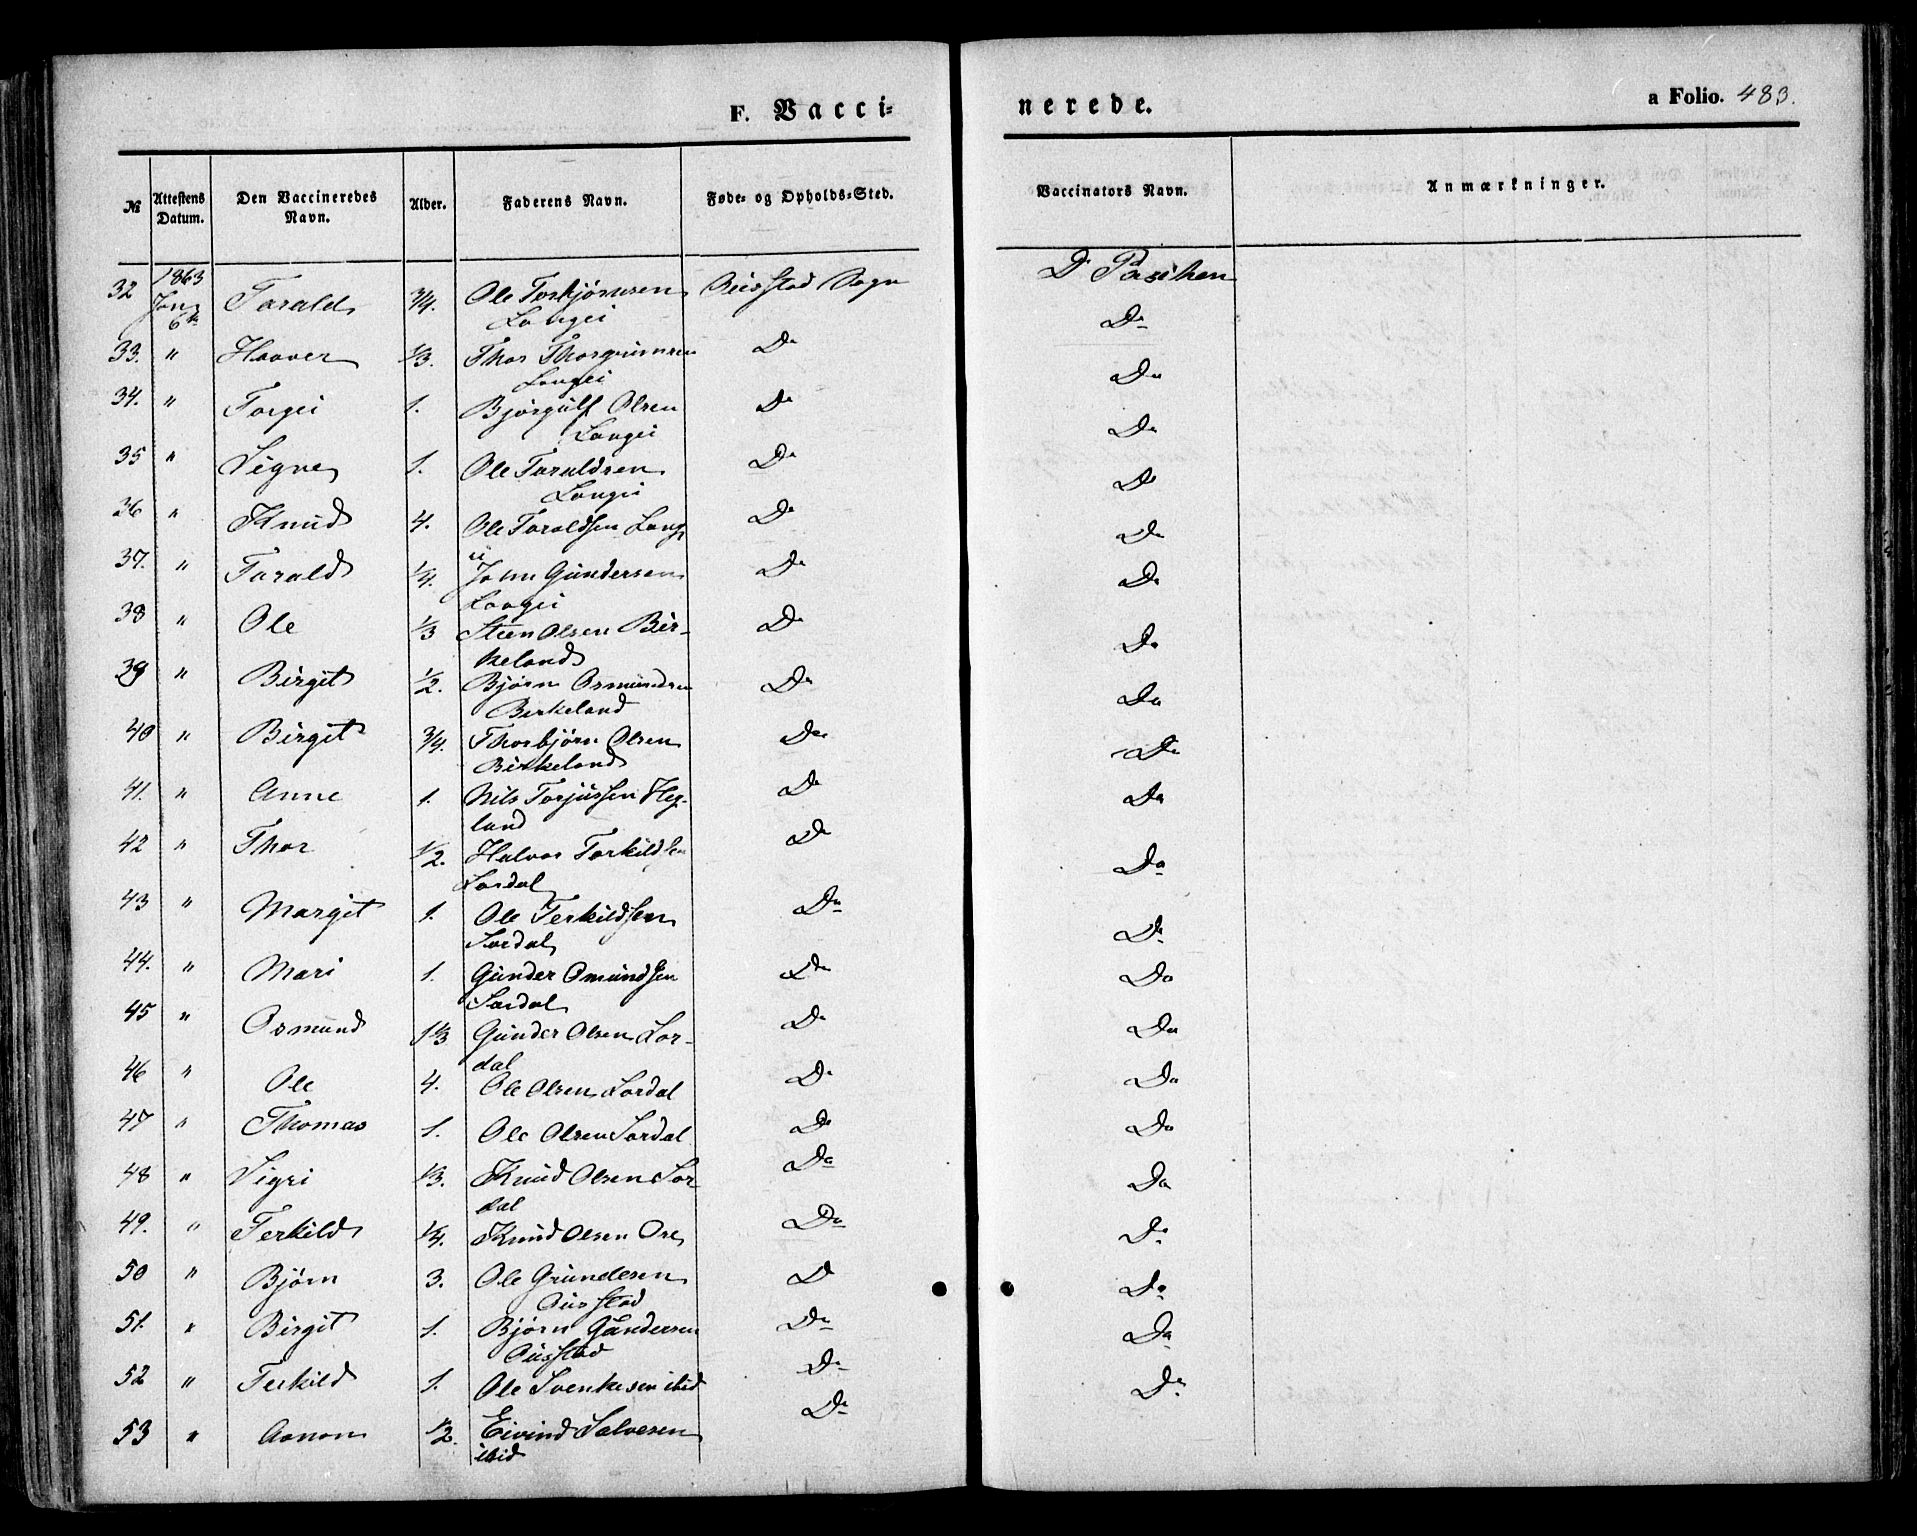 F. Vacci-
nerede.
a Folio. 483.
№ Attestens Datum. Den Vaccineredes Navn. Alder. Faderens Navn. Føde- og Opholds-Sted. Vaccinators Navn. Anmærkninger.
32 1863 Jan 6te Tarald 3/4. Ole Torbjørnsen Sogn Dr
Langei Do
33. " Haaver 1/3. Thor Thorgrimsen Do
Langei Do
34. " Torgei 1. Bjørgulf Olsen Do
Langei Do
35 " Signe 1. Ole Taraldsen Do
Langei Do
36 " Knud 4. Ole Taraldsen Lang Do Do
ei
37. " Tarald 1/4. John Gundersen Do Do
Langei
38 " Ole 1/3 Steen Olsen Bir- Do Do
keland
39 " Birgit 1/2. Bjørn Osmundsen Do Do
Birkeland
40 " Birgit 3/4. Thorbjørn Olsen Do Do
Birkeland
41. " Anne 1. Nils Torjussen Heg- Do Do
land
42 " Thor 1/2. Halvor Terkildsen Do Do
Lordal
43 " Margit 1. Ole Terkildsen Do Do
Lordal
44. " Mari 1. Gunder Omundsen Do Do
Lordal
45 " Osmund 1 1/3 Gunder Olsen Lor- Do Do
dal
46 " Ole 4. Ole Olsen Lordal Do Do
47 " Thomas 1. Ole Olsen Lordal Do Do
48 " Sigri 1/3. Knud Olsen Lor- Do Do
dal
49. " Terkild 1/4. Knud Olsen Ose Do Do
50 " Bjørn 3. Ole Grundesen D Do
Ousstad
51. " Birgit 1. Bjørn Gundersen Do Do
Ousstad
52 " Terkild 1. Ole Svenkesen ibid Do Do
53 " Aanon 1/2. Eivind Salvesen Do
ibid